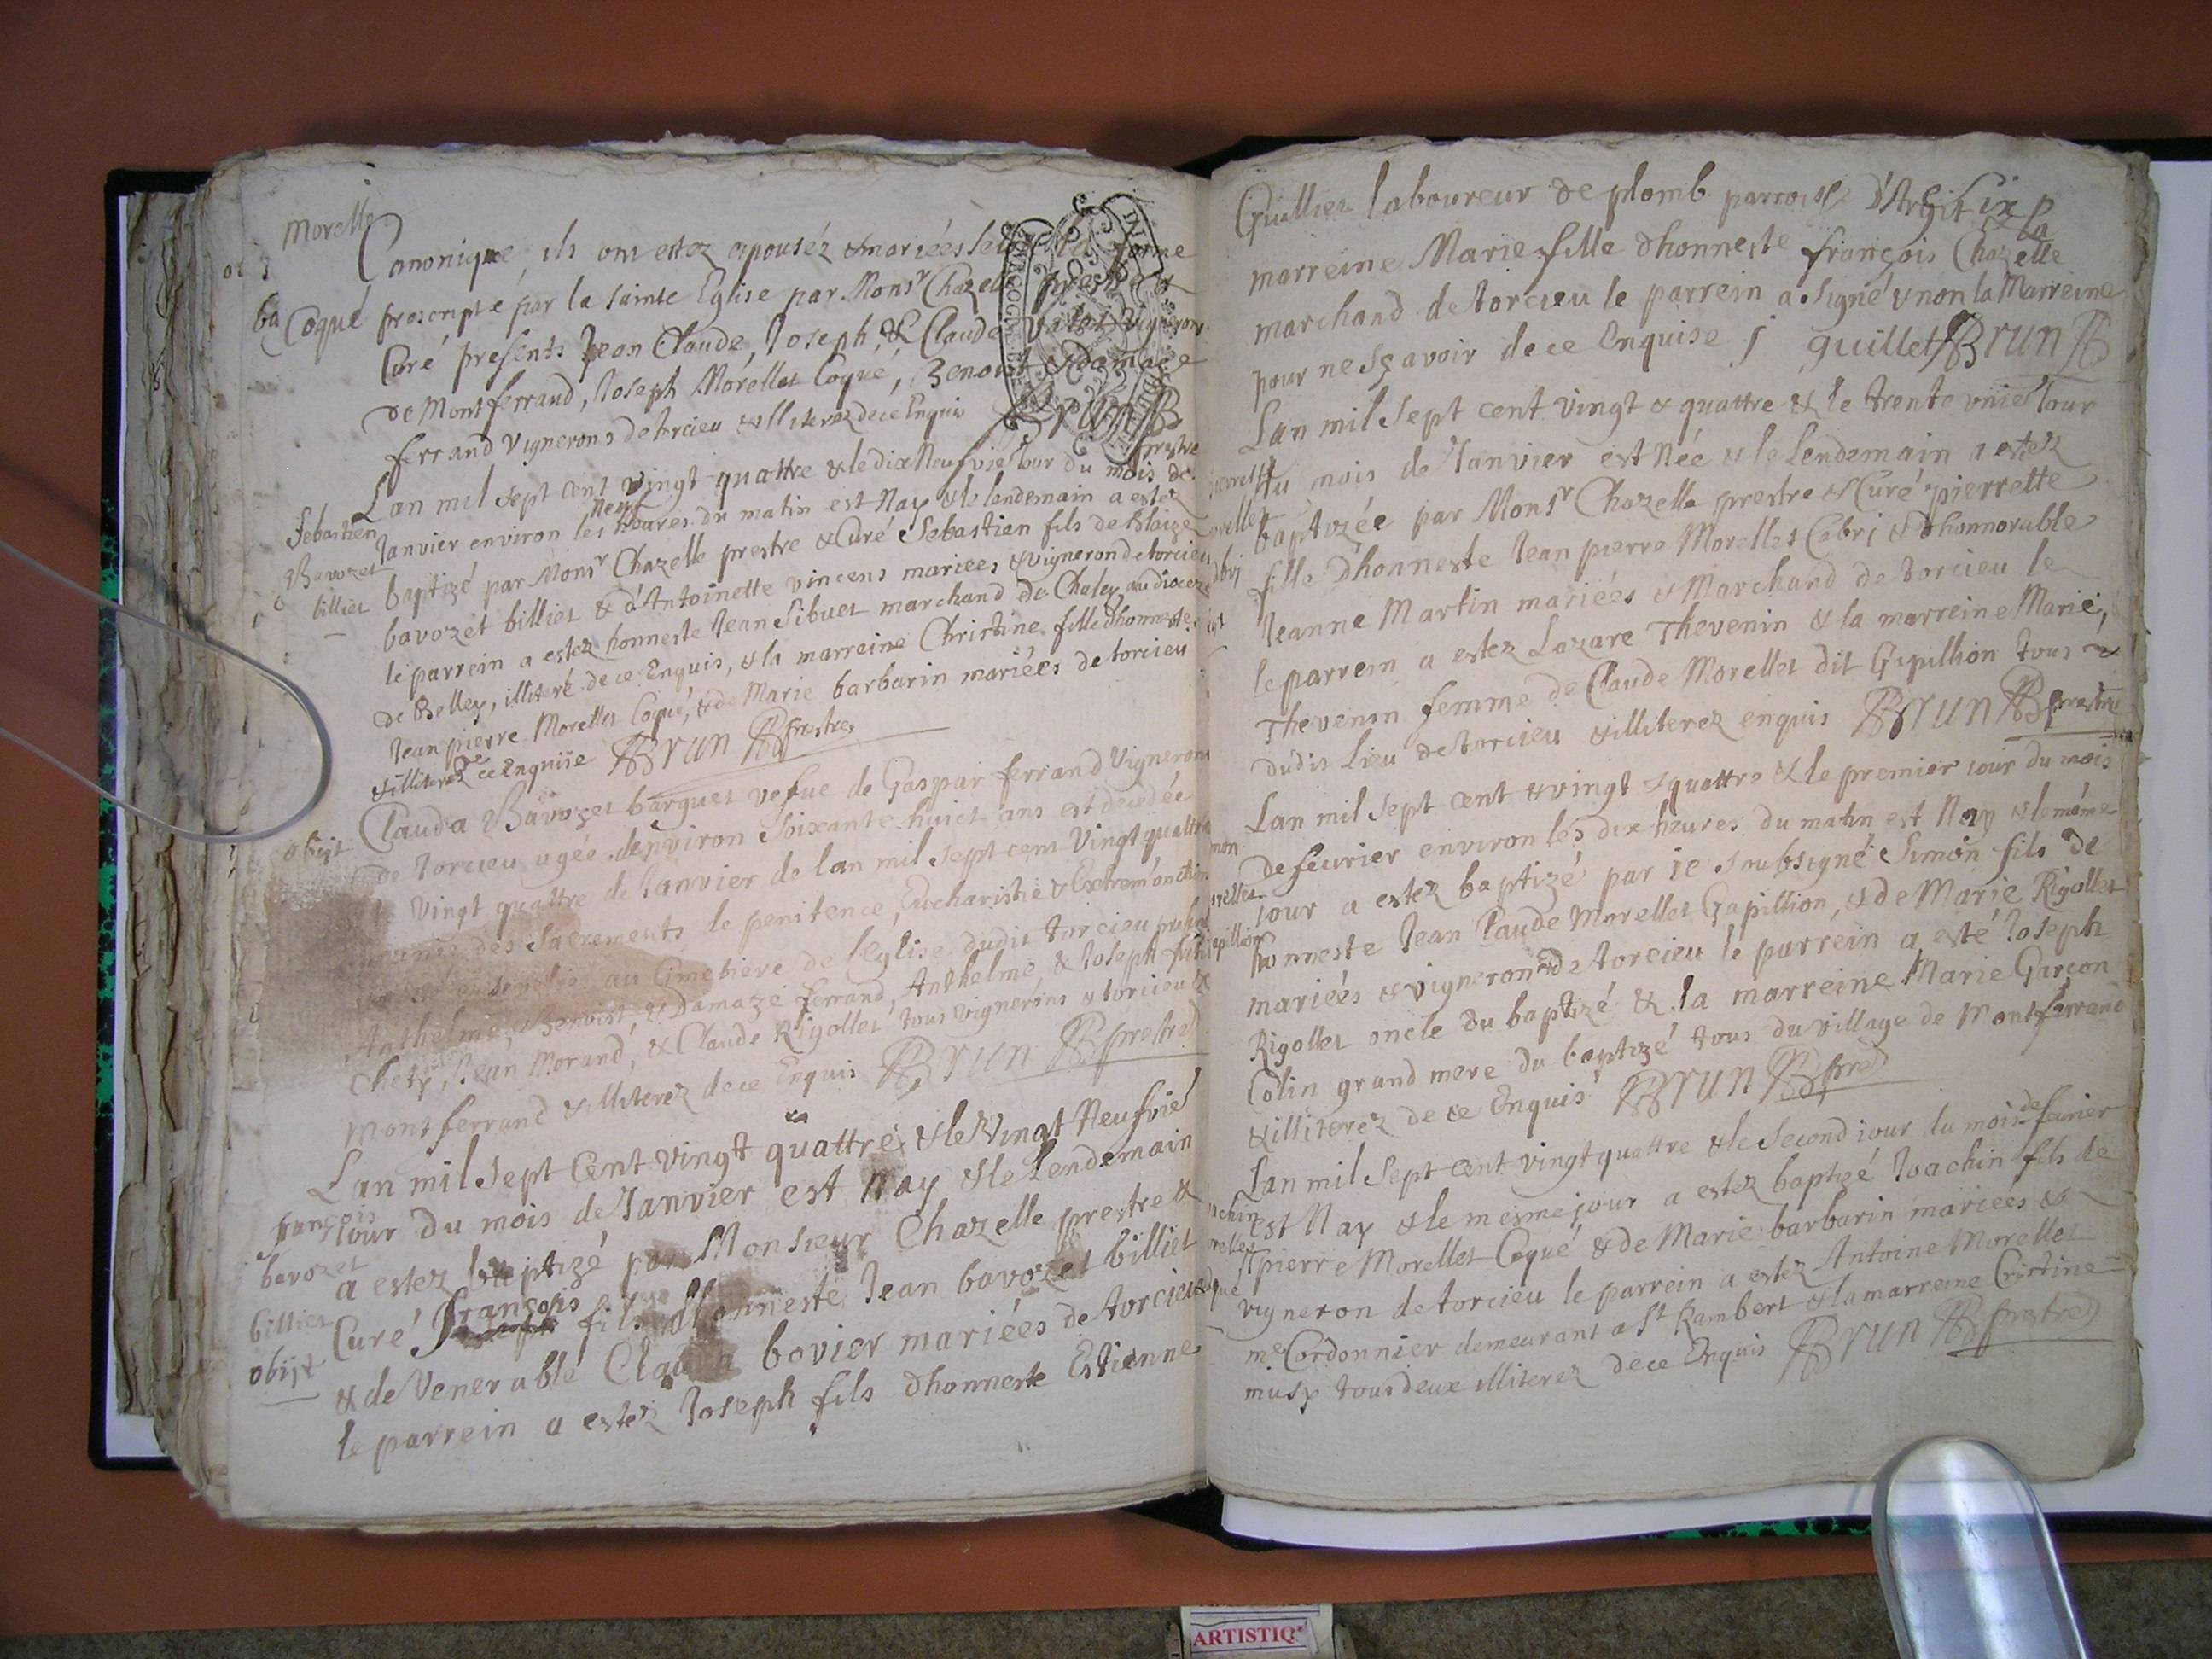 Morellet
Canonique, ils ont estez epouséz & mariées forme
Coqué prescripte par la sainte Eglise par Monsr Chazelle prestre &
Curé presents Jean Claude, Joseph, & Claude Valot vignerons
de Montferrand, Joseph Morellet Coqué, Benoist & damaze
ferrand vignerons de torcieu & illiterez de ce Enquis Brun prestre
Lan mil sept cent vingt quattre & le dix Neufvie Iour du mois de
Sebastien Janvier environ les Neuf heures du matin est Nay & le lendemain a estez
Bavozet baptizé par Monsr Chazelle prestre & Curé Sebastien fils de Blaize
billiet bavozet billiet & d'Antoinette vincens mariees & vigneron de torcieu
le parrein a estez honneste Jean Sibuet marchand de Chaley au dioceze
de Belley, illiteré de ce Enquis, & la marreine Christine fille dhonneste
Jean pierre Morellet Coqué, & de Marie barbarin mariées de torcieu
& illiterez de ce Enquise Brun prestre
obijt Clauda Bavozet barguet vefue de Gaspar ferrand Vigneron
de Torcieu agée denviron soixante huict ans est decedée
le vingt quattre de Janvier de lan mil sept cent Vingt quattre
munie des Sacrements de penitence, Eucharistie & Extremonction
au Cimetiere de lEglise dudit torcieu
Anthelme, Benoist & Damaze ferrand, Anthelme & Joseph
Chety, Jean Morand, & Claude Rigollet tous vignerons a torcieu &
Montferrand & illiterez de ce Enquis Brun prestre
Lan mil sept Cent vingt quattre & le Vingt Neufvie
françois Iour du mois de Janvier est Nay & le Lendemain
bavozet a estez baptizé par Monsieur Chazelle prestre &
billiet Curé François fils dhonneste Jean bavozet billiet
obijt & de Venerable Clauda bovier mariées de torcieu
le parrein a estez Joseph fils dhonneste Estienne
Guilliet laboureur de plomb parroisse d'Argit six p
marreine Marie fille dhonneste françois Chazelle la
marchand de torcieu le parrein a signé & non la Marreine
pour ne sçavoir de ce Enquise guillet Brun
Lan mil sept cent vingt & quattre & le trente unie Iour
du mois de Janvier est Née & le Lendemain a estez
baptizée par Monsr Chazelle prestre & Curé pierrette
fille dhonneste Jean pierre Morellet Cabri & dhonnorable
Jeanne Martin mariées & Marchand de torcieu le
le parrein a estez Lazare Thevenin & la marreine Marie,
Thevenin femme de Claude Morellet dit Gipillion tous
dudit Lieu de torcieu & illiterez enquis Brun prestre
Lan mil sept cent & vingt & quattre & le premier iour du mois
de feuvrier environ les dix heures du matin est Nay & le méme
iour a estez baptizé par ie soubsigné Simon fils de
honneste Jean Claude Morellet Gapillion, & de Marie Rigollet
mariées & vignerons de torcieu le parrein a esté Joseph
Rigollet oncle du baptizé & la marreine Marie Garçon
Colin grand mere du baptizé tous du village de Montferrand
& illiterez de ce Enquis Brun pre
Lan mil sept cent vingt quattre & le second iour du mois de feurier
est Nay & le mesme jour a estez baptizé Joachin fils de
pierre Morellet Coqué & de Marie barbarin mariées &
vigneron de torcieu le parrein a estez Antoine Morellet
me Cordonnier demeurant a St Rambert & la marreine Cristine
musy tous deux illiterez de ce Enquis Brun prestre
ARTISTIQ